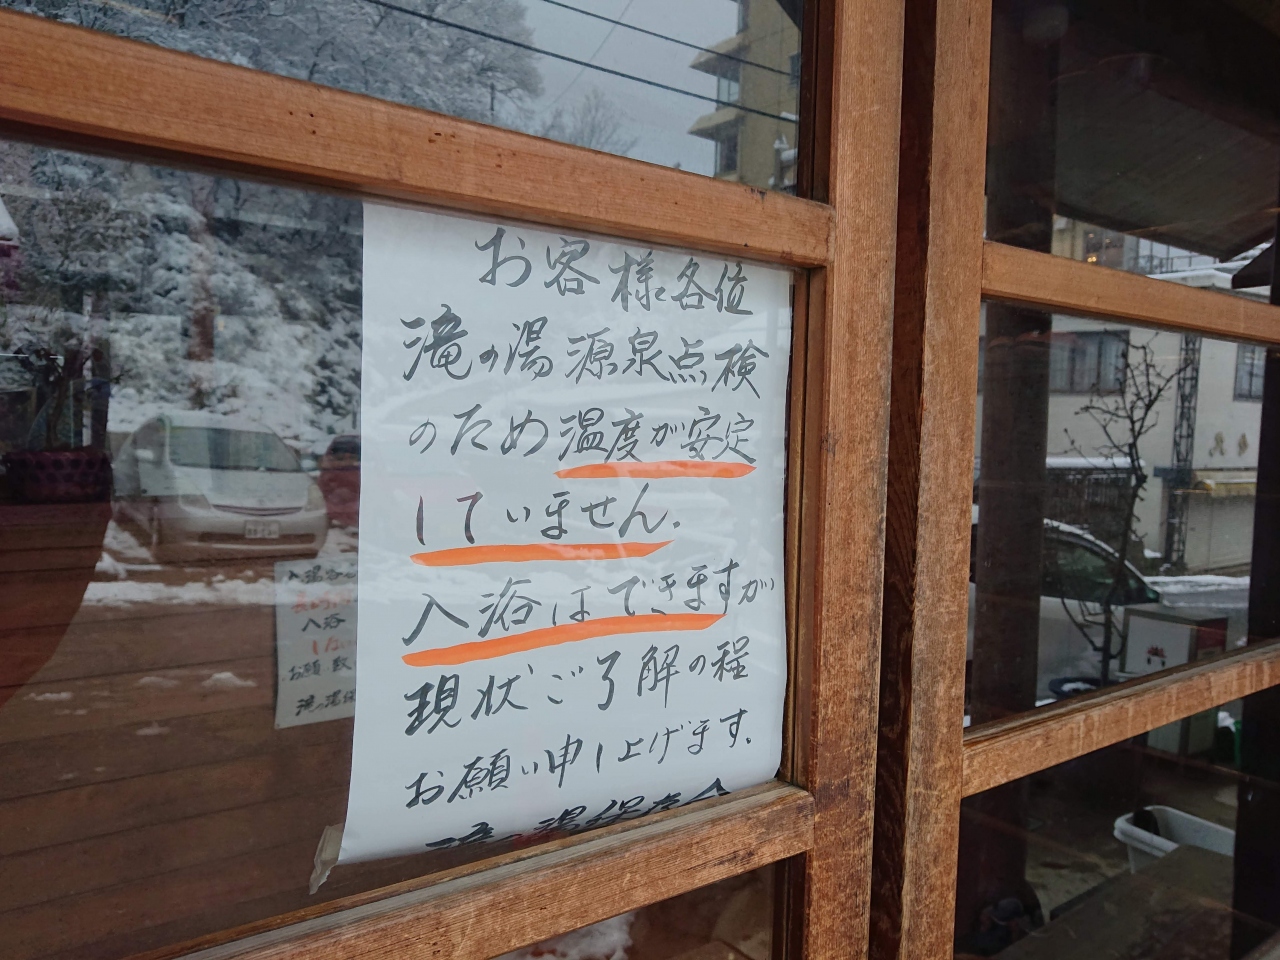 お客様各位
滝の湯源泉点検
のため温度が安定
していません.
入浴はできますが
現状ご了解の程
お願い申し上げます.
滝の湯保存会
入湯
入浴
お願 致
滝の湯保